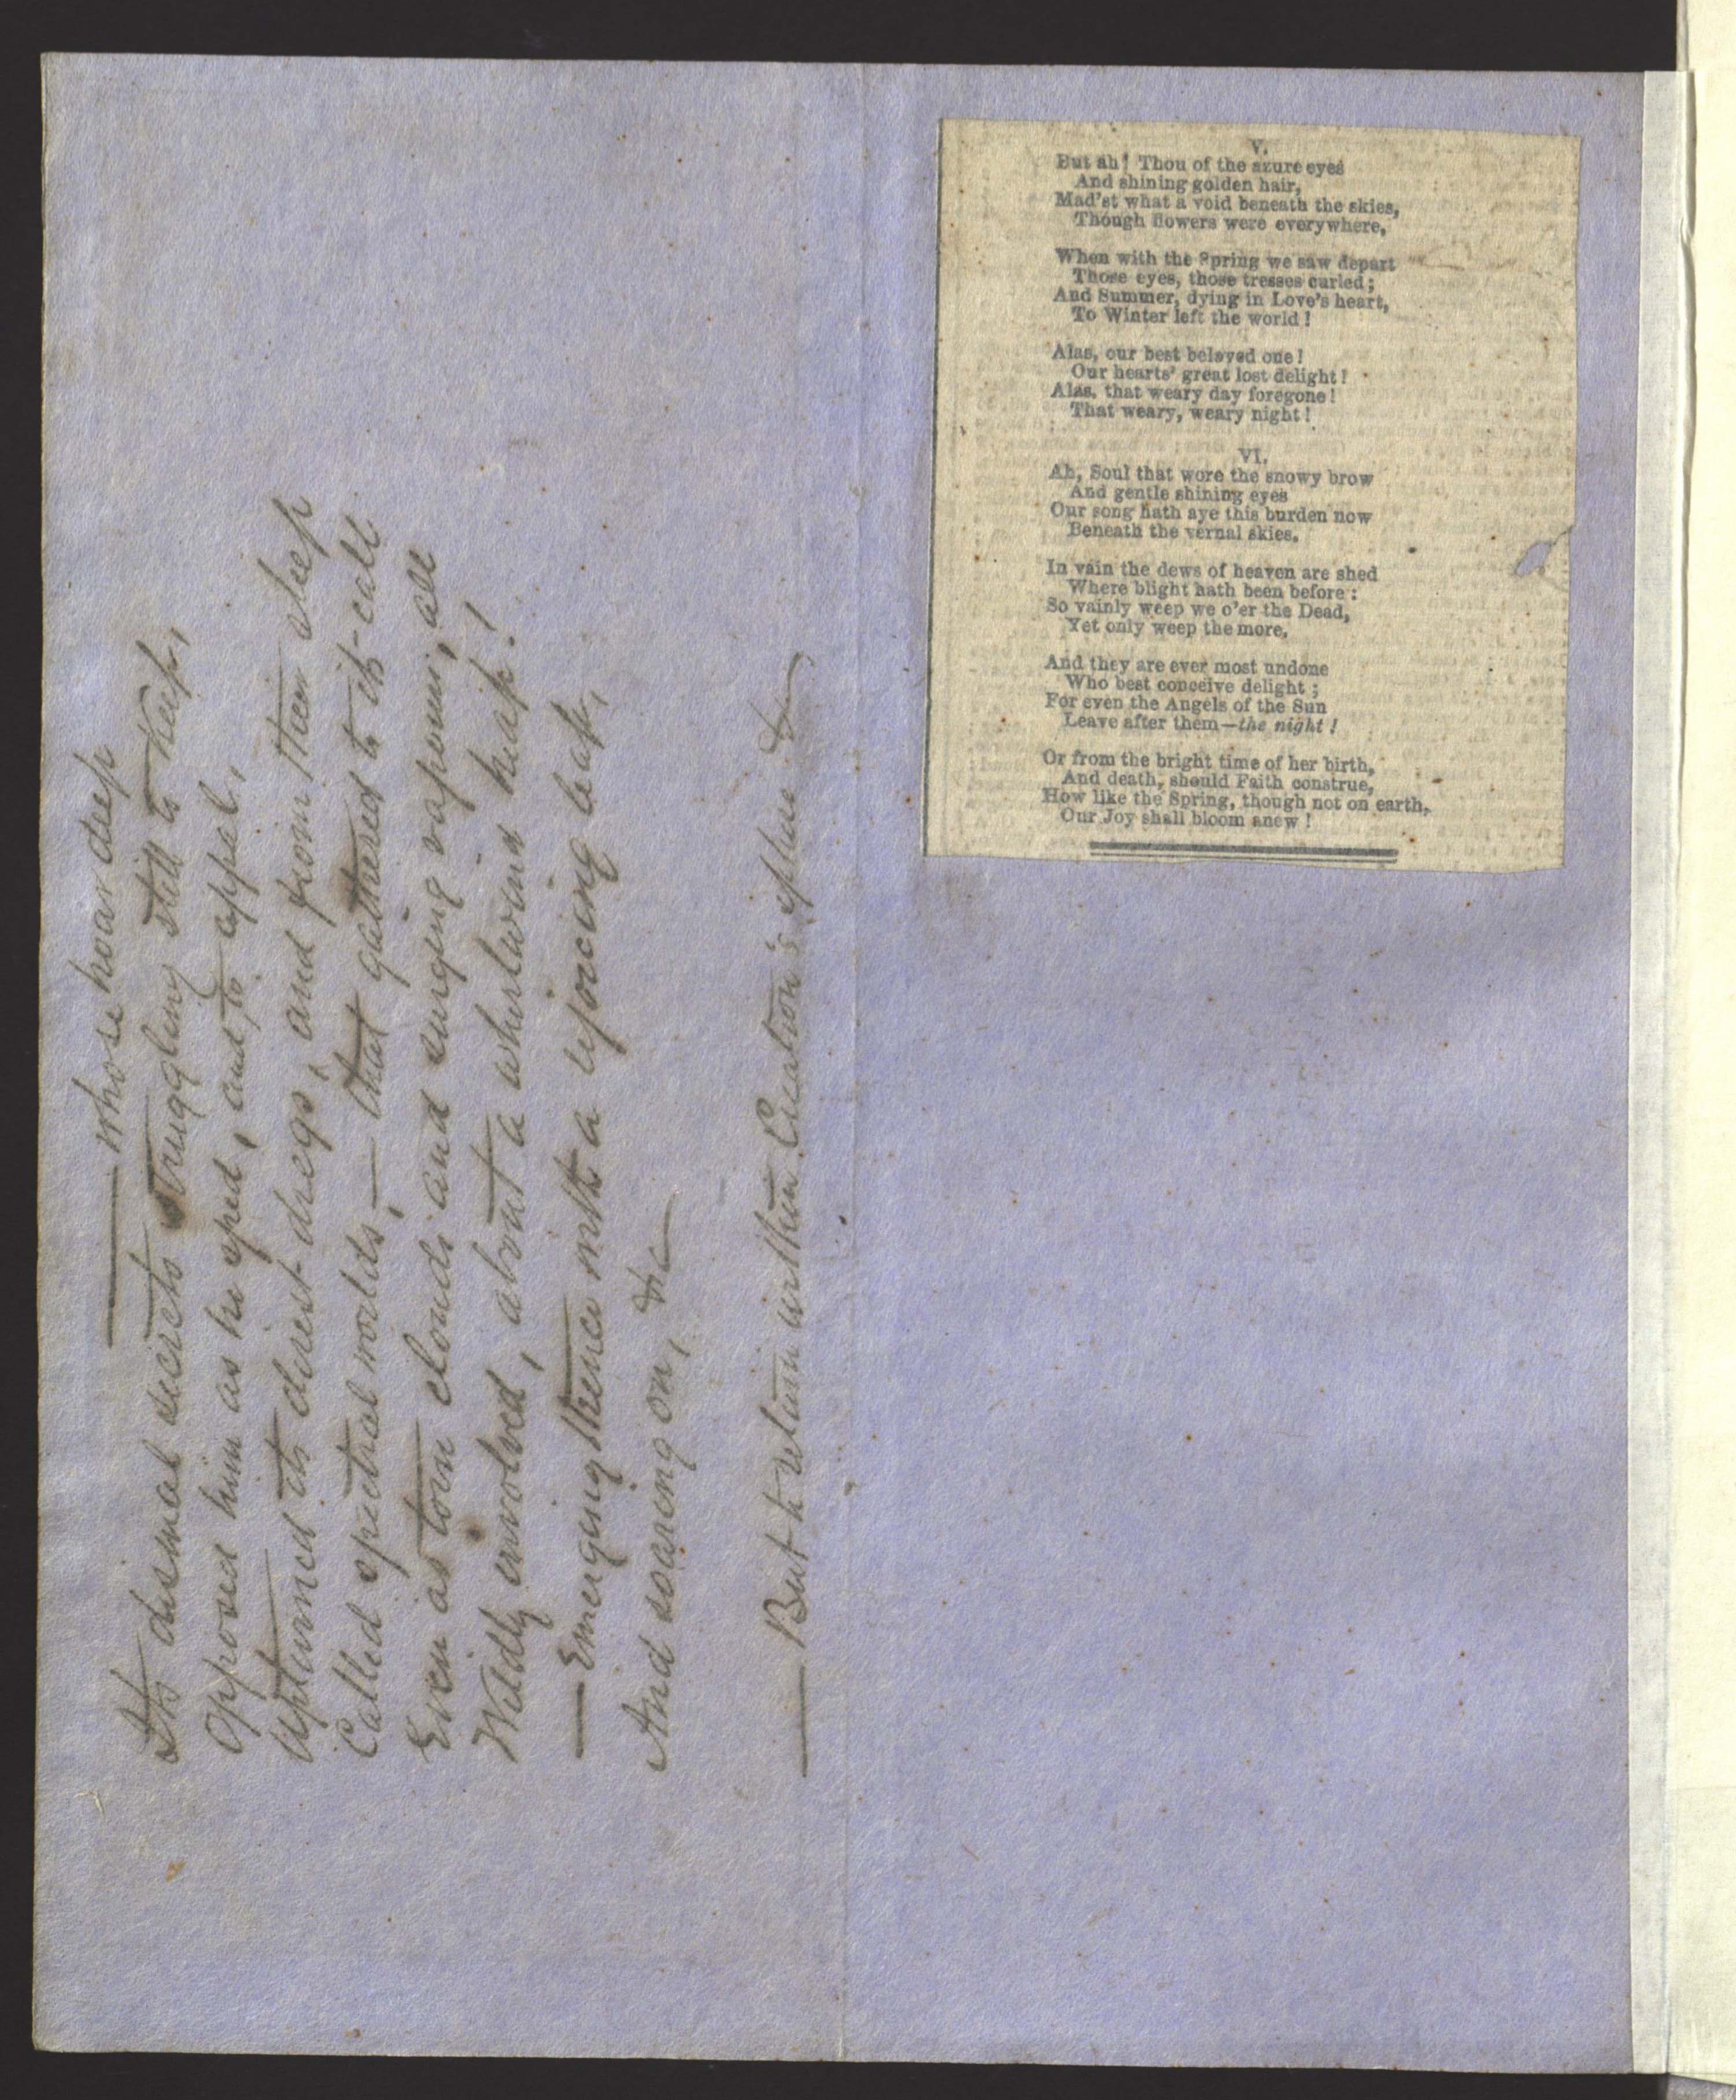 —— whose hoar deep
Its dismal secrets struggling still to keep,
Opposed him as he sped, and to appal,
Upturned its direst dregs, and from their sleep
Called spectral worlds,— that gathered to its call
Even as torn clouds and surging vapours, all
Wildly involved, about a whirlwind heap!
— Emerging thence with a rejoicing leap,
And soaring on, &c—
—— But to return within Creation's sphere &c—
V.
But ah! Thou of the azure eyes
And shining golden hair,
Mad'st what a void beneath the skies,
Though flowers were everywhere,
When with the Spring we saw depart
Those eyes, those tresses curled;
And Summer, dying in Love's heart,
To Winter left the world!
Alas, our best beloved one!
Our hearts' great lost delight!
Alas, that weary day foregone!
That weary, weary night!
VI.
Ah, Soul that wore the snowy brow
And gentle shining eyes
Our song hath aye this burden now
Beneath the vernal skies.
In vain the dews of heaven are shed
Where blight hath been before:
So vainly weep we o'er the Dead,
Yet only weep the more.
And they are ever most undone
Who best conceive delight;
For even the Angels of the Sun
Leave after them—the night!
Or from the bright time of her birth,
And death, should Faith construe,
How like the Spring, though not on earth,
Our Joy shall bloom anew!